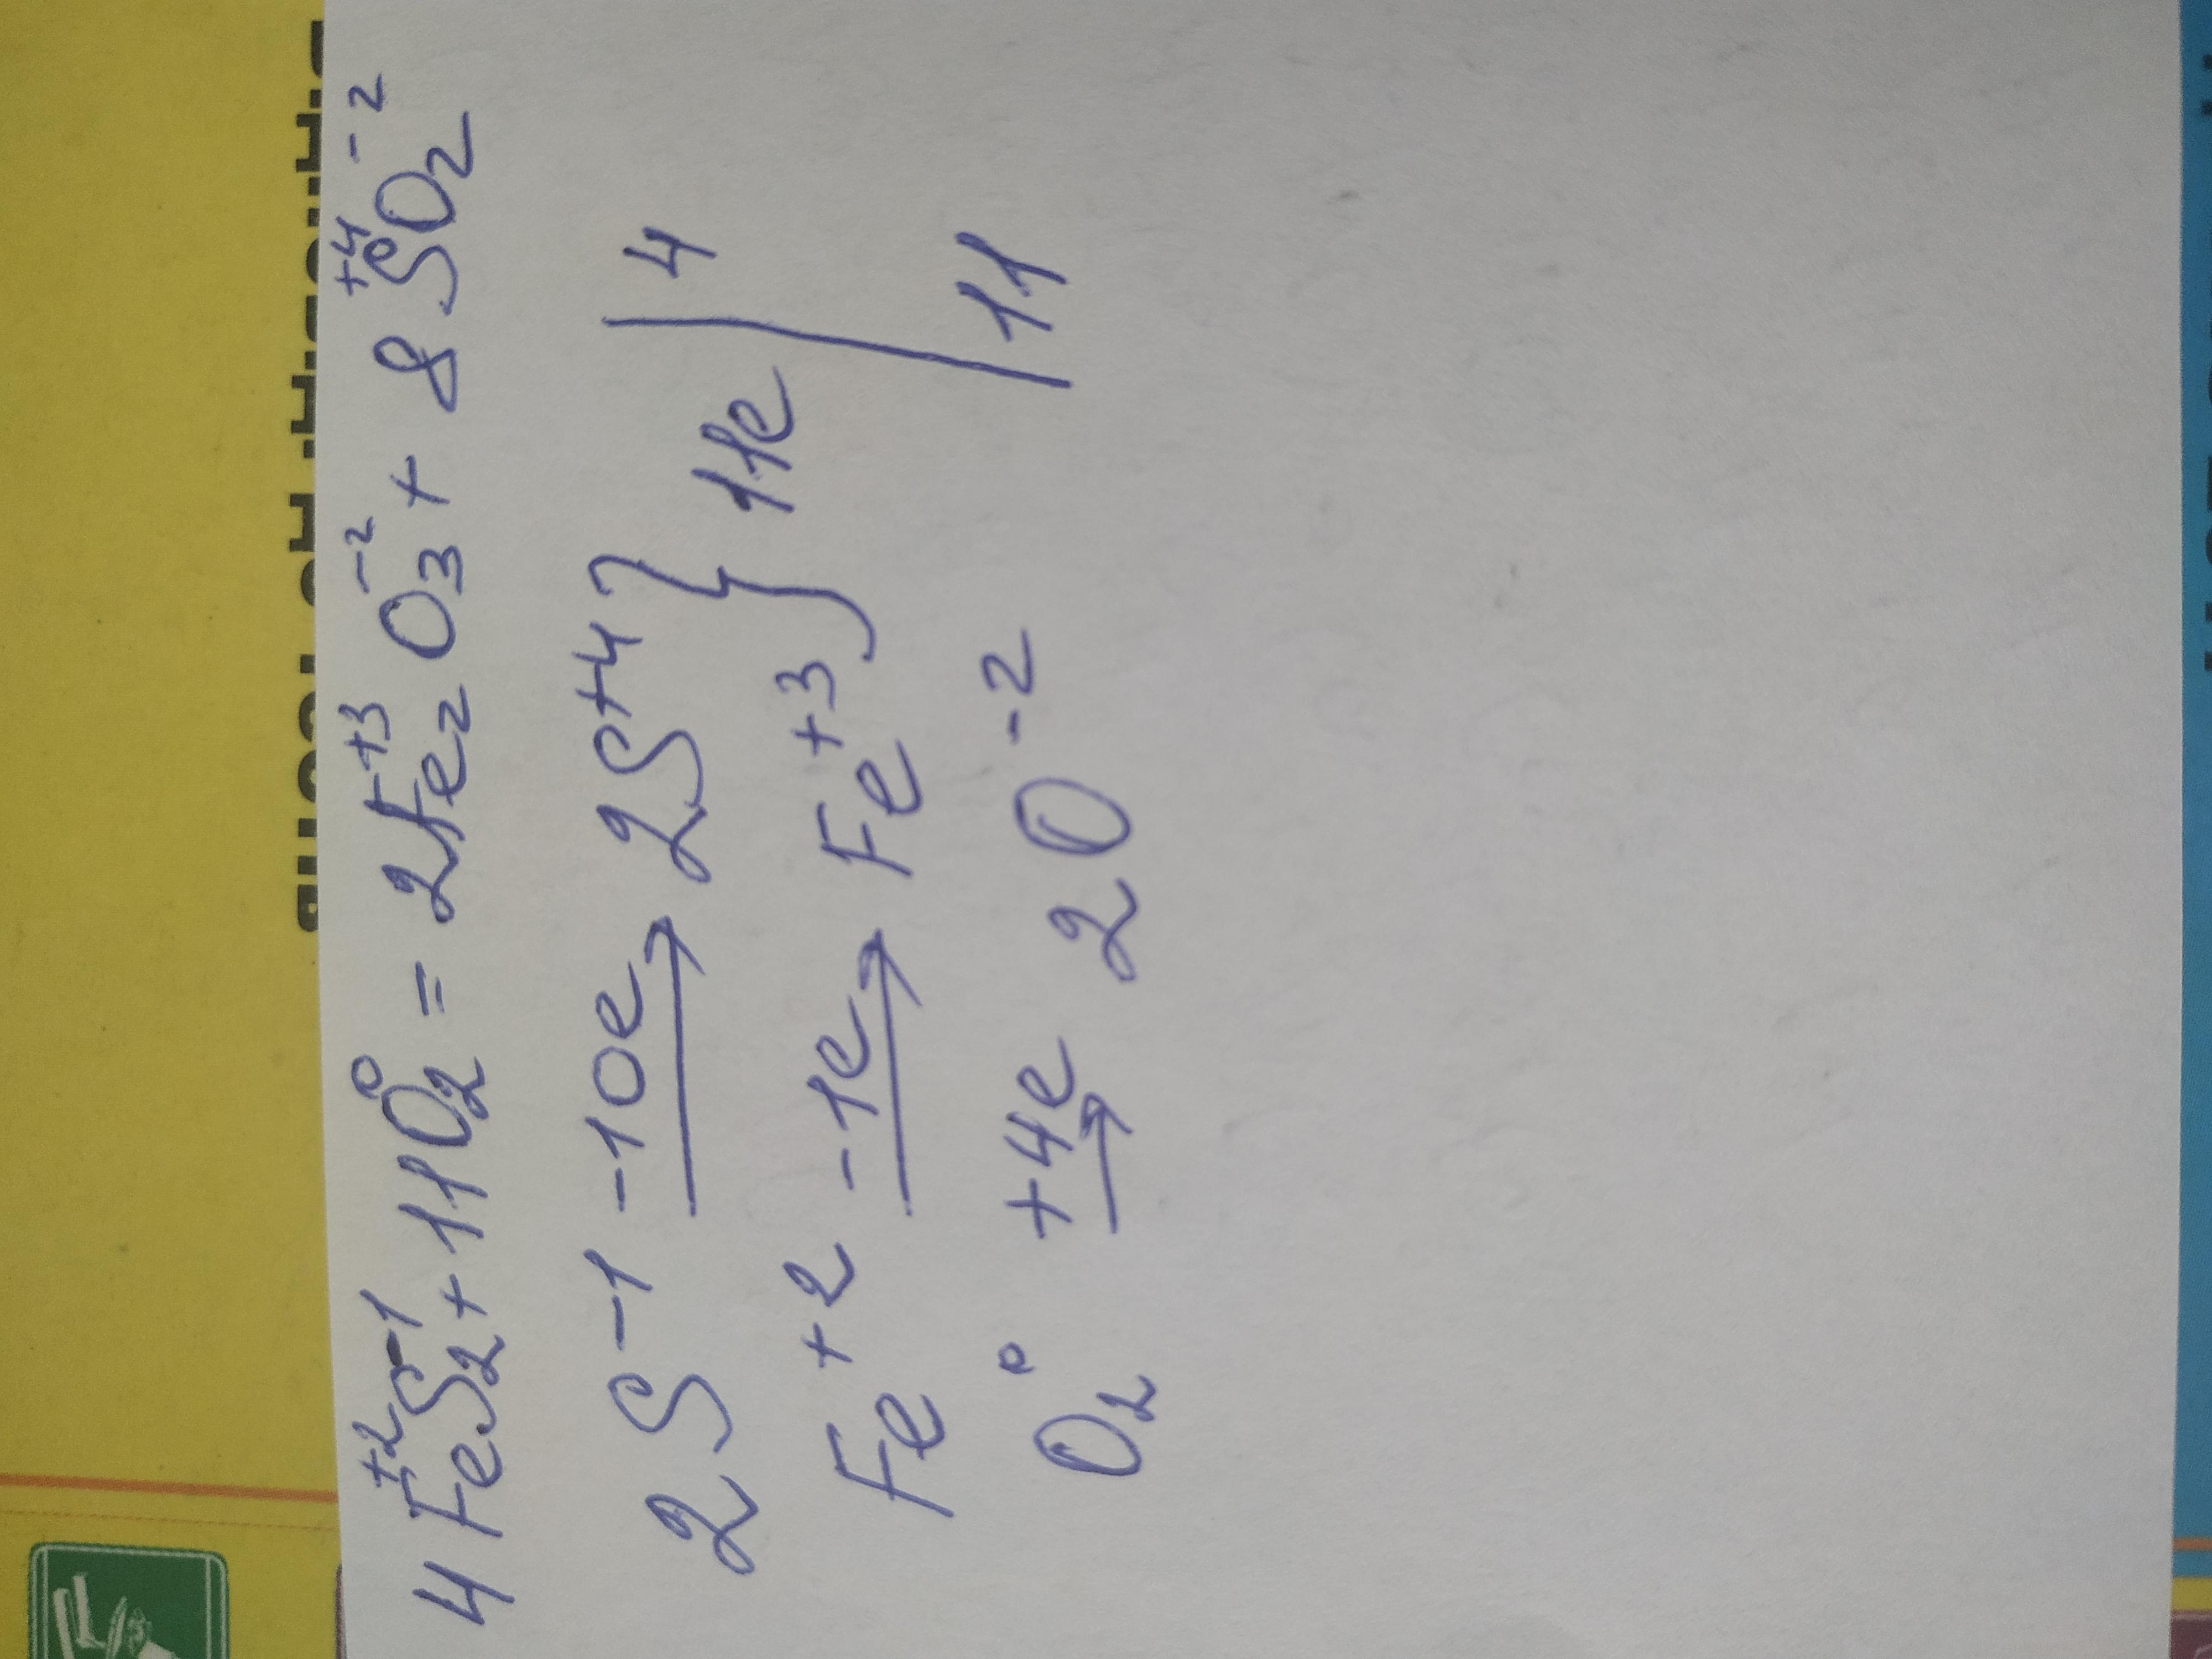 4Fe⁺²S₂⁻¹ + 11O₂⁰ = 2Fe₂⁺³O₃⁻² + 8S⁺⁴O₂⁻²
2S⁻¹ -10e → 2S⁺⁴ } 11e | 4
Fe⁺² -1e → Fe⁺³
O₂⁰ +4e → 2O⁻² | 11